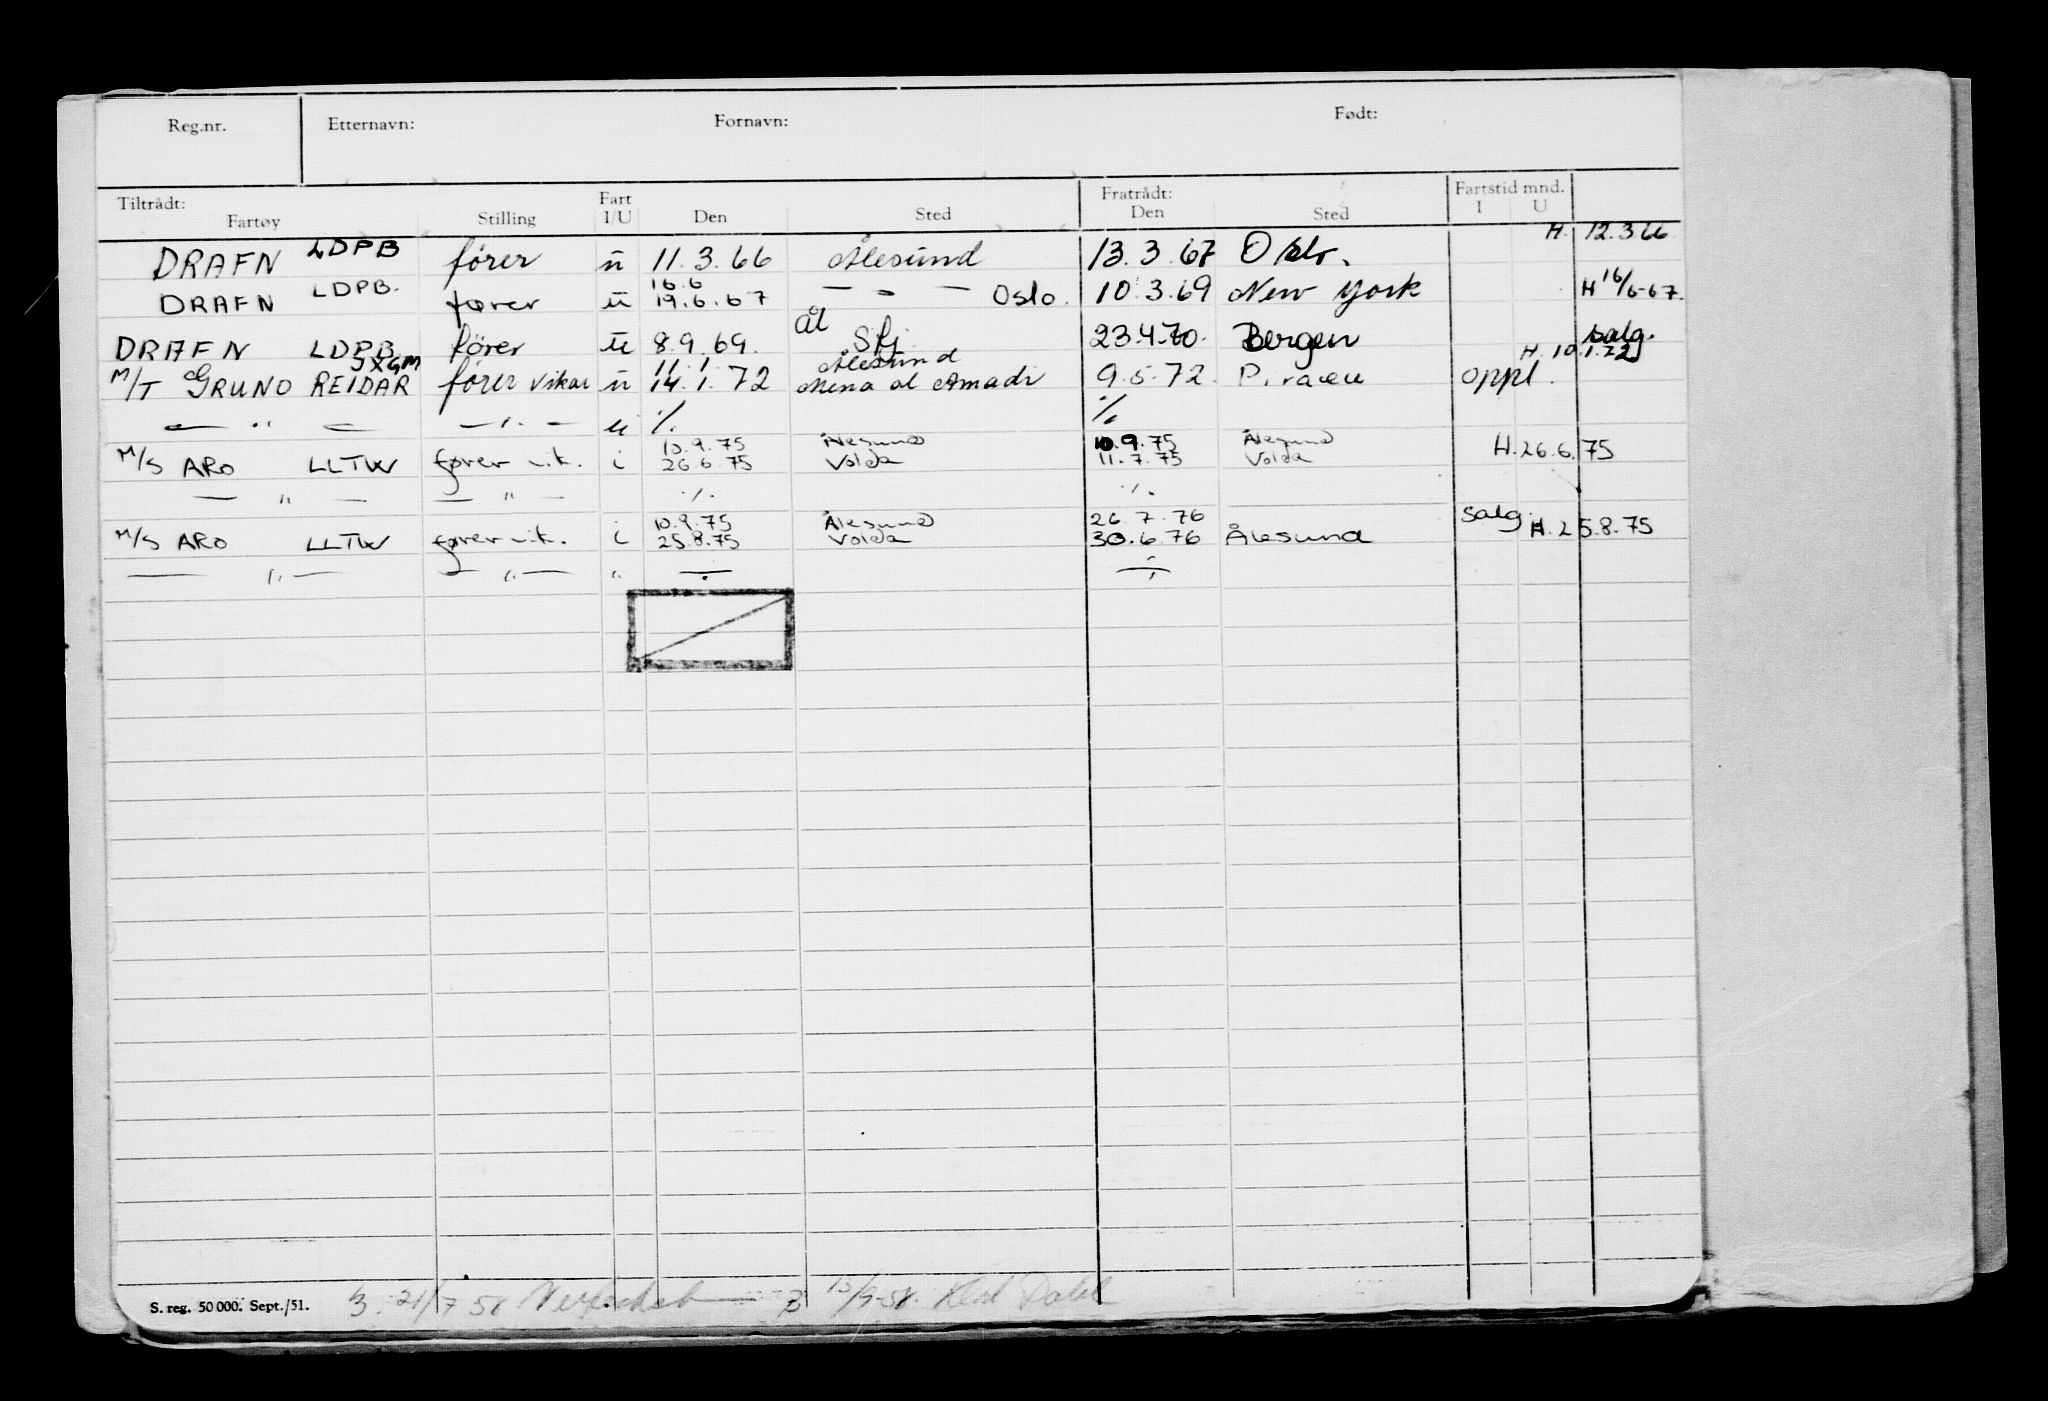 Reg.nr. Etternavn: Fornavn: Født:
Tiltrådt: Fart Fratrådt: Fartstid mnd.
Fartøy Stilling I/U Den Sted Den Sted I U
H. 12.3 66
DRAFN LDPB fører ū 11.3.66 Ålesund 13.3.67 Oslo.
16.6
DRAFN LDPB. fører ū 19.6.67 — " — Oslo. 10.3.69 New York H 16/6-67.
Ål salg.
DRAFN LDPB fører ū 8.9.69. Sfj 23.4.70. Bergen
JXGM 11.1 Ålesund H. 10.1.72
M/T GRUNO REIDAR fører vikar ū 14.1.72 Mena al Amadi 9.5.72. Piraeu oppl.
— " — — " — u ./. ./.
10.9.75 Ålesund 10.9.75 Ålesund
M/S ARO LLTW fører vik. i 26.6.75 Volda 11.7.75 Volda H.26.6.75
— " — — " — ./. ./.
10.9.75 Ålesund 26.7.76 salg
M/S ARO LLTW fører vik. i 25.8.75 Volda 30.6.76 Ålesund H.25.8.75
— " — — " — " ÷ ÷
S. reg. 50 000. Sept./51. 21/7 58